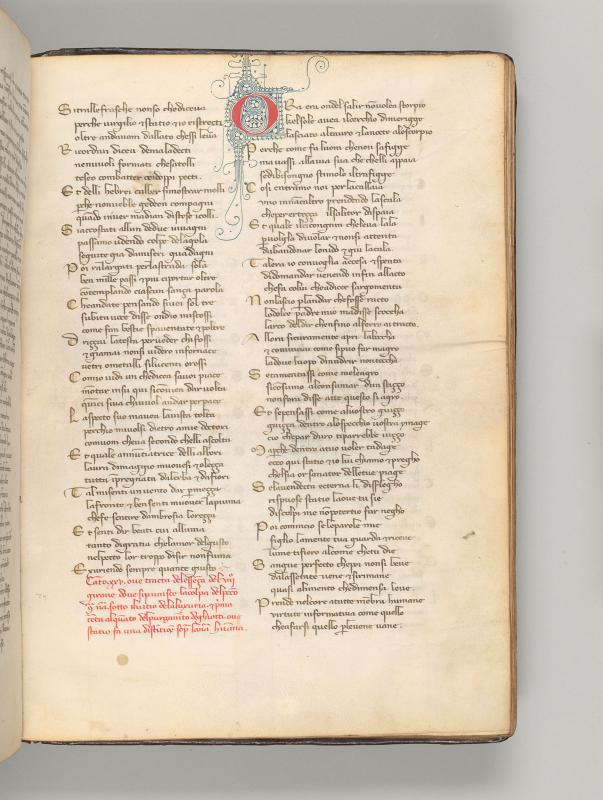 Si tralle frasche nonso chediceua
perche virgilio & statio & io ristrecti
oltre andauam dallato chessi leua
Ricordiui dicea demaladecti
nenuuoli formati chesatolli
teseo combatter codoppi pecti
Et delli hebrei
quando inuer madian discese icolli
Si accostati allun deduo uiuagni
passamo udendo colpe dellagola
seguite gia damiseri guadagni
Poi rallargati perlastrada sola
ben mille passi & piu ciportar oltre
contemplando ciascun sanza parola
Che andate pensando si uoi sol tre
subita uoce disse ondio miscossi
come fan bestie spauentate & poltre
Drizzai latesta perueder chi fossi
& giamai nonsi videro infornace
uetri ometalli silucenti orossi
Comio uidi un chedicea sauoi piace
montar insu qui siconuien dar uolta
quinci siua chi uuol andar per pace
Laspecto suo mauea lauista tolta
perchio miuolsi dietro amie doctori
comuom cheua secondo chelli ascolta
Et quale annuntiatrice delli albori
laura dimaggio muouesi & olezza
tutta impregnata dalerba & dafiori
Tal misenti un uento dar permezza
lafronte & ben senti muouer lapiuma
chefe sentire dambrosia lorezza
Et senti dir beati cui alluma
tanto digratia chelamor delgusto
nelpecto lor troppo disir nonfuma
Exuriendo sempre quanto giusto
Canto xxv. oue tracta
girone
statio fa una
Ora era ondel salir nonuolea storpio
chelsole auea ilcerchio dimerigge
lasciato altauro & lanocte aloscorpio
Perche come fa luom chenon safigge
ma uassi allauia sua che chelli appaia
sedibisongno stimolo iltrafigge
Cosi entramo noi perlacallaia
uno innanzi altro prendendo lascala
cheper artezza isalitor dispaia
Et quale ilcicongnin cheleua lala
peruolglia diuolar & nonsi attenta
dabandonar lonido & giu lacala
Tal era io conuoglia accesa & spenta
didimandar uenendo infin allacto
chefa colui chedicer sargomenta
Non lascio
ladolce padre mio madisse scoccha
larco deldir chenfino alferro ai tracto
Allora sicuramente apri labocca
& cominciai come sipuo far magro
la doue luopo dinudrir nontocca
Setamentassi come meleagro
siconsumo alconsumar dun stizzo
nonfora disse atte questo si agro
Et sepensassi come aluostro guizzo
guizza dentro alospecchio uostra ymage
cio chepar duro tiparrebbe uizzo
Ma perche dentro atuo uoler tadage
ecco qui statio & io lui chiamo & pregho
chelsia or sanator delletue piage
Selaueduta ecterna li disslegho
rispuose statio laoue tu sie
discolpi me nonpotertio far negho
Poi comincio selemparole mie
figlio lamente tua guarda & riceue
lume tifiero alcome chetu die
Sangue perfecto chepoi nonsi beue
dallassetate uene & sirimane
quasi alimento chedimensa leue
Prende nelcore atutte membra humane
virtute informatiua come quello
cheafarsi quello perleuene uane.